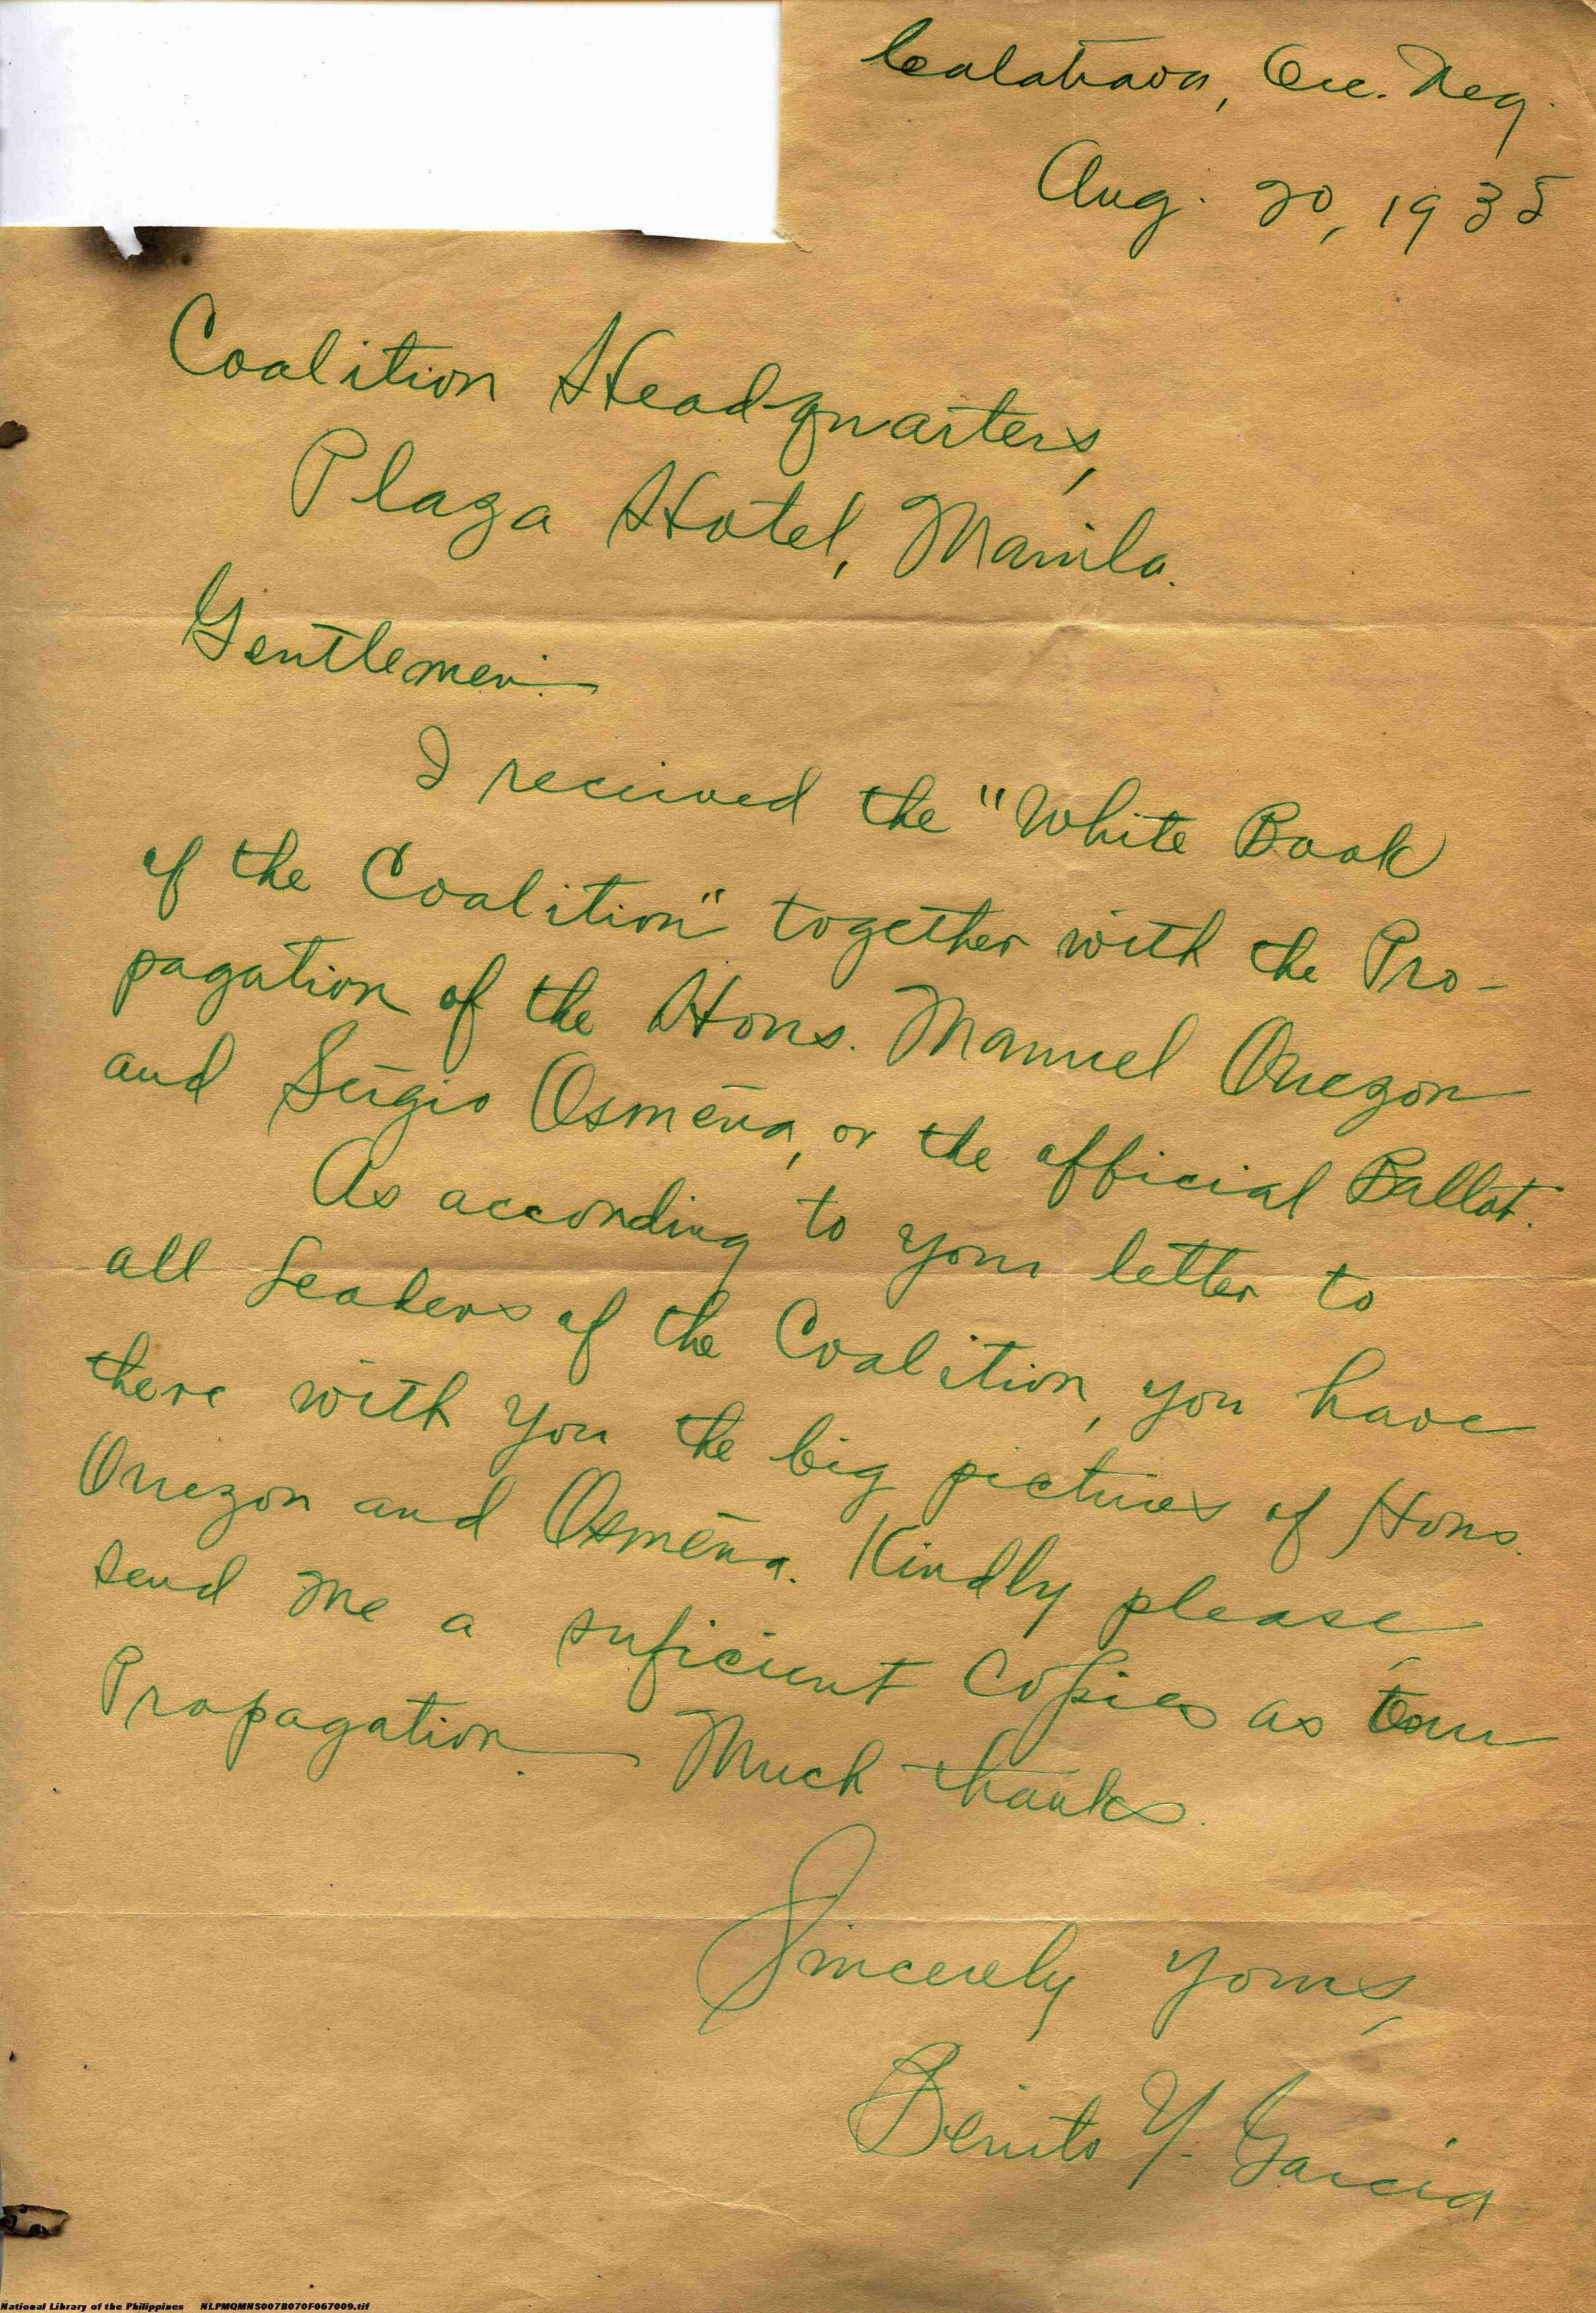 Calatrava, Occ. Neg.
Aug. 20, 1935
Coalition Headquarters,
Plaza Hotel, Manila.
Gentlemen:
I received the "White Book
of the Coalition" together with the Pro-
pagation of the Hons. Manuel Quezon
and Sergio Osmeña, or the official Ballot.
As according to your letter to
all Leaders of the Coalition, you have
there with you the big pictures of Hons.
Quezon and Osmeña. Kindly please,
send me a suficient Copies as our
Propagation. Much thanks.
Sincerely yours,
Benito Y. Garcia
National Library of the Philippines NLPMQMNS007B070F067009.tif